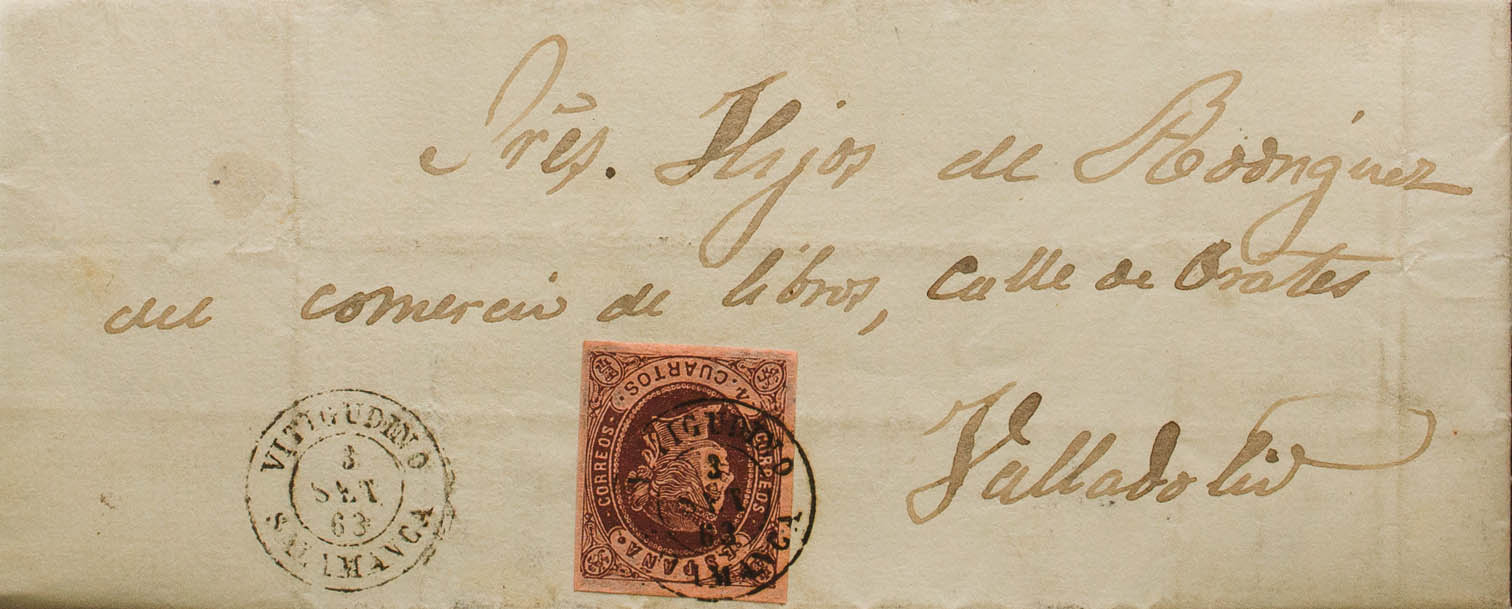 Sres. Hijos de Rodriguez
del comercio de libros, Calle de Orates
Valladolid
VITIGUDINO
3
SET
63
SALAMANCA
4. CUARTOS.
CORREOS
CORREOS
ESPAÑA
VITIGUDINO
3
SET
63
SALAMANCA